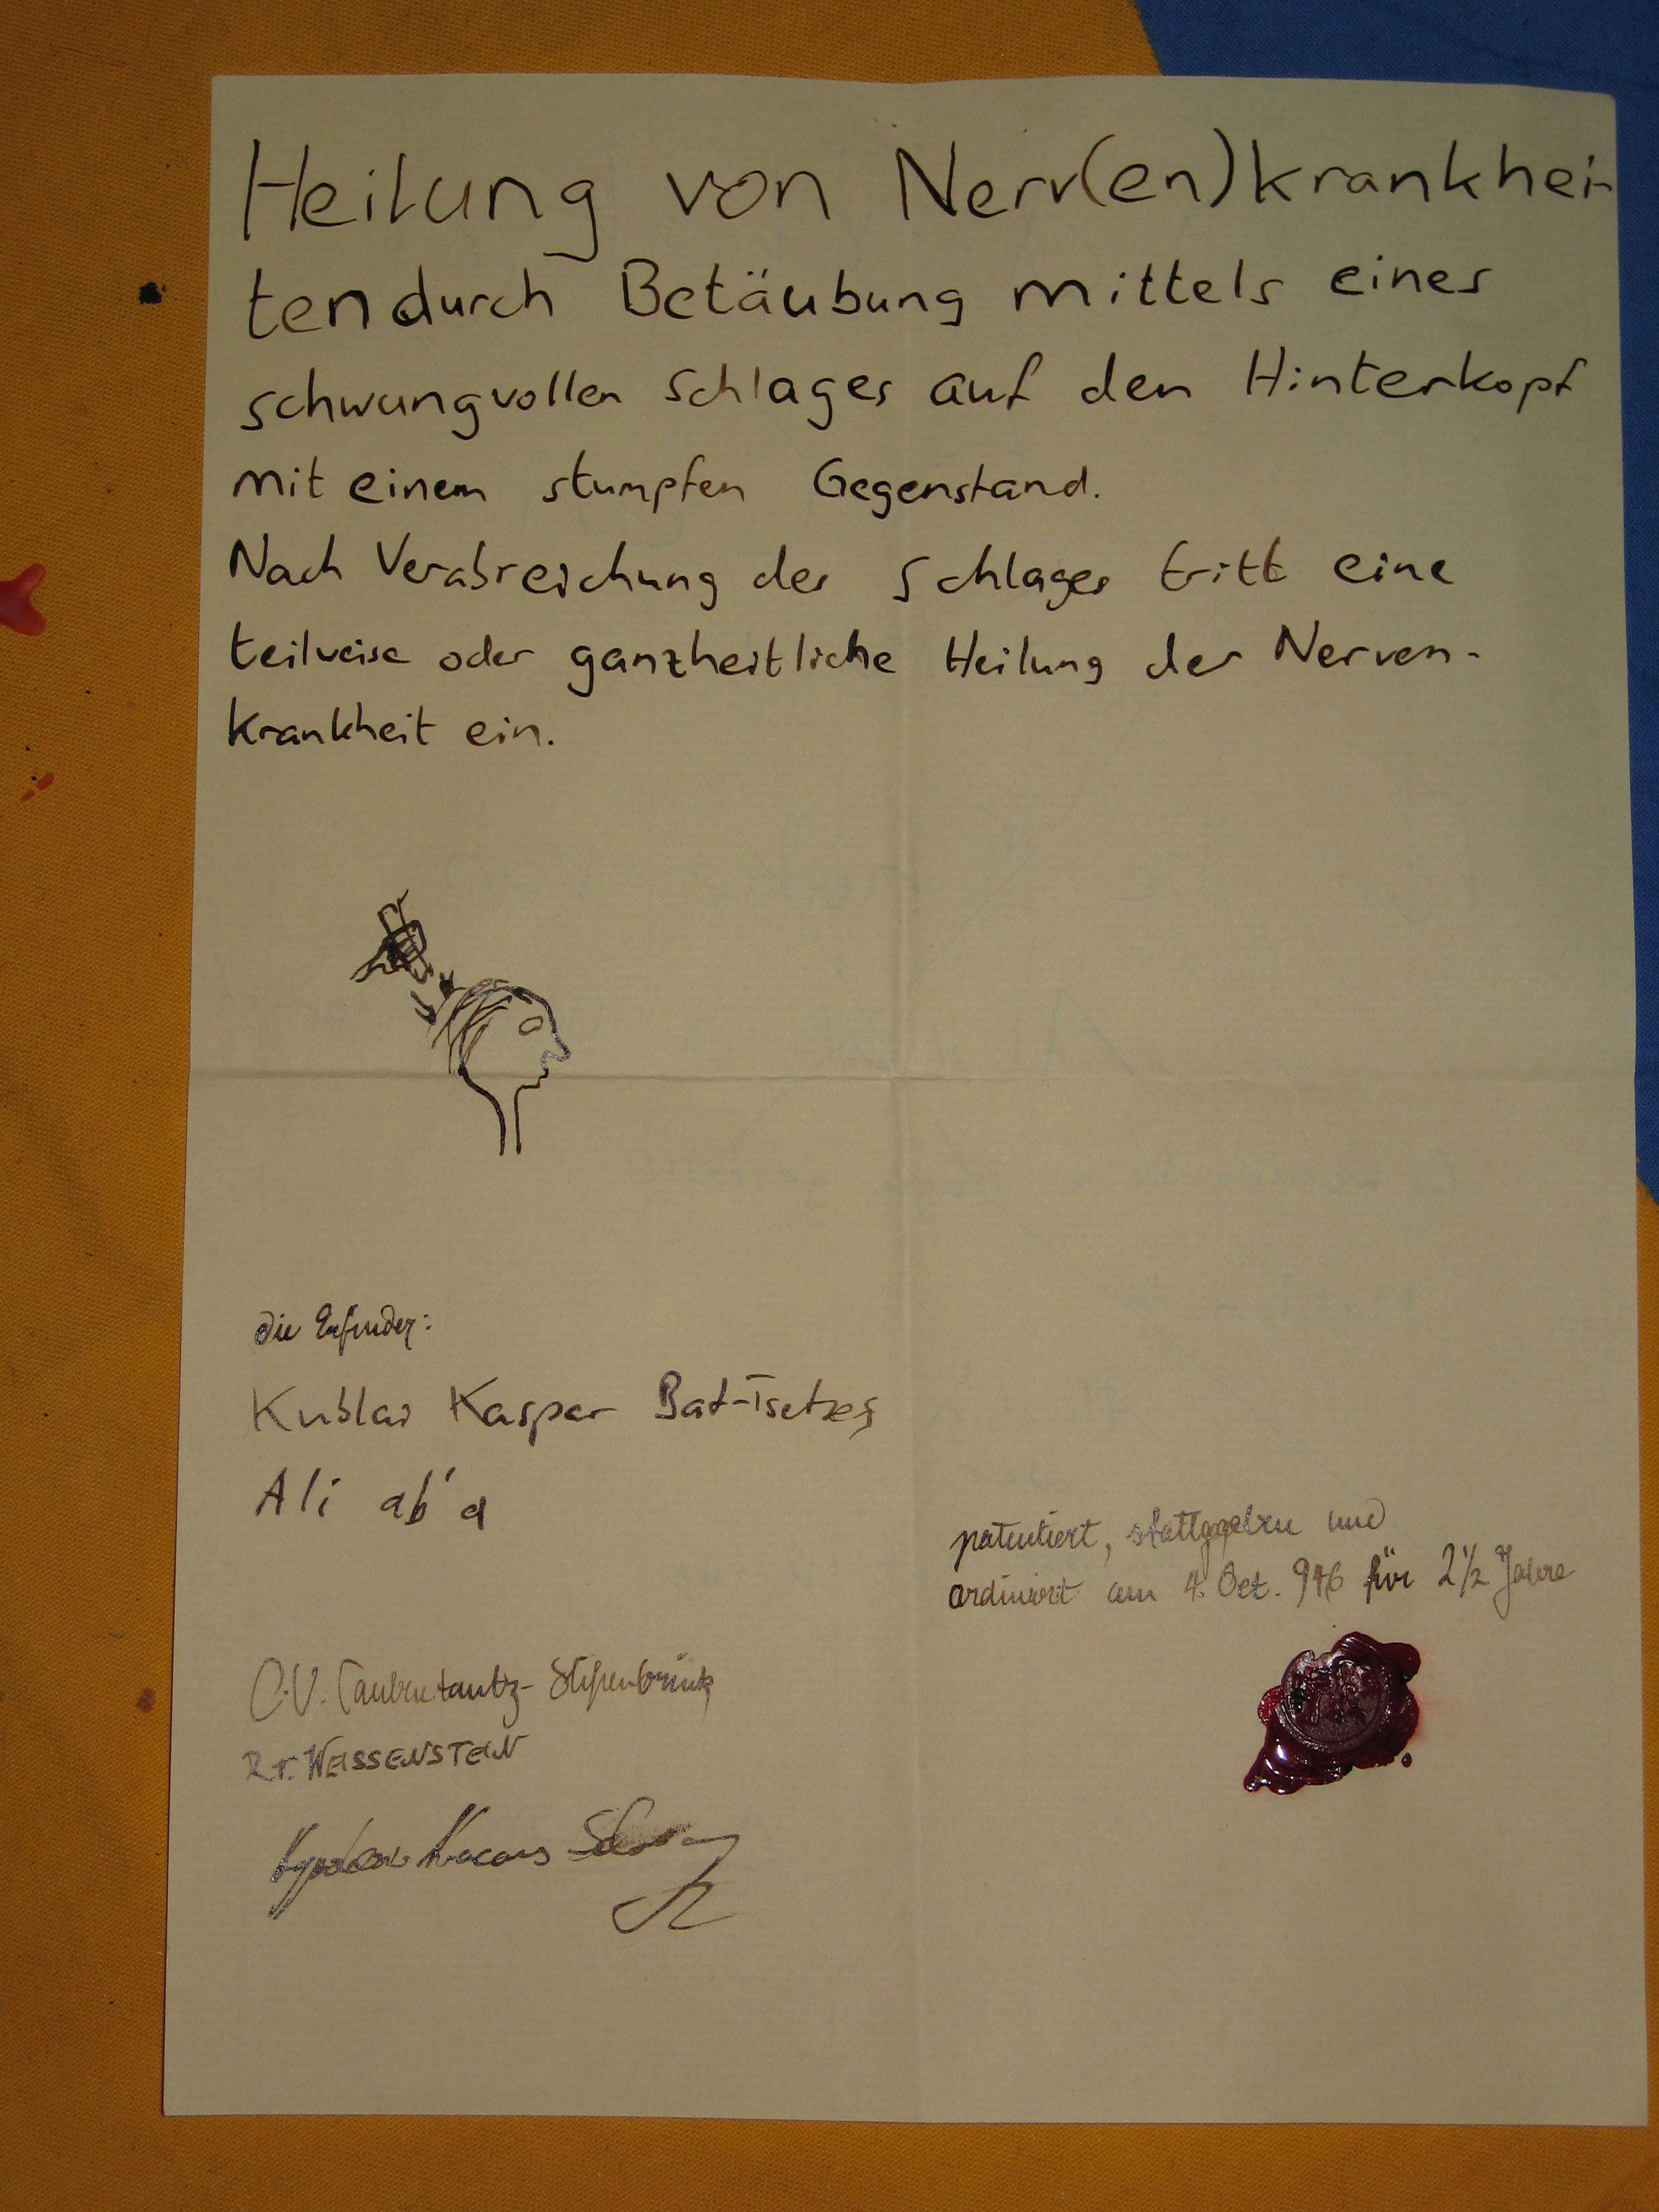 Heilung von Nerv(en)krankhei-
ten durch Betäubung mittels eines
schwungvollen Schlages auf den Hinterkopf
mit einem stumpfen Gegenstand.
Nach Verabreichung des Schlages tritt eine
teilweise oder ganzheitliche Heilung der Nerven-
krankheit ein.
die Erfinder:
Kublai Kaspar Bat-Tsetseg
Ali ab'a
patentiert, stattgegeben und
ordiniert am 4. Oct. 946 für 2 1/2 Jahre
C.V. Taubentantz-
R.v. WEISSENSTEIN